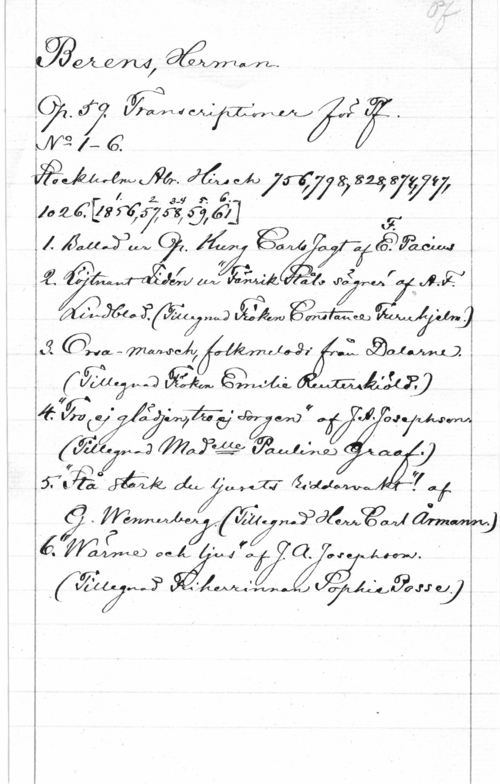 Pf
Berens, Herman.
Op. 59. Transcriptioner för Pf.
No 1-6.
Stockholm Abr. Hirsch 756, 798, 828, 874, 947,
1026. [1856, 2 57, 3.4 58, 5. 59, 6. 61]
1. Ballad ur Op. Kung Carls Jagt af F. Pacius
2. Löjtnant Zidén ur "Fänrik Ståls sägner" af A. F.
Lindblad. (Tillegnad Fröken Constance Furuhjelm.)
3. Orsa-marsch, folkmelodi från Dalarne.
(Tillegnad Fröken Emilie Reuterskiöld.)
4. "Tro, ej glädjen, tro ej sorgen" af J. A. Josephson.
(Tillegnad Madelle Pauline Graaf.)
5. "Stå stark du ljusets riddarvakt"! af
G. Wennerberg. (Tillegnad Herr Carl Årmann.)
6. "Wärme och ljus" af J. A. Josephson.
(Tillegnad Friherrinnan Sophie Posse.)